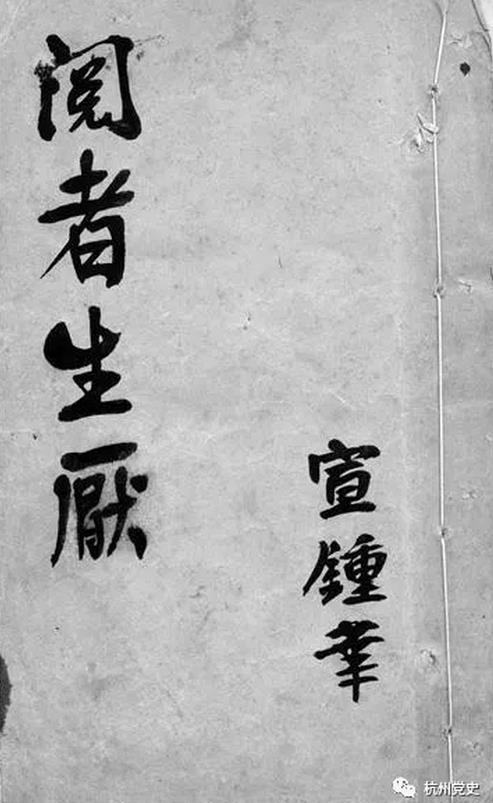 閲者生厭
宣鍾華
杭州党史